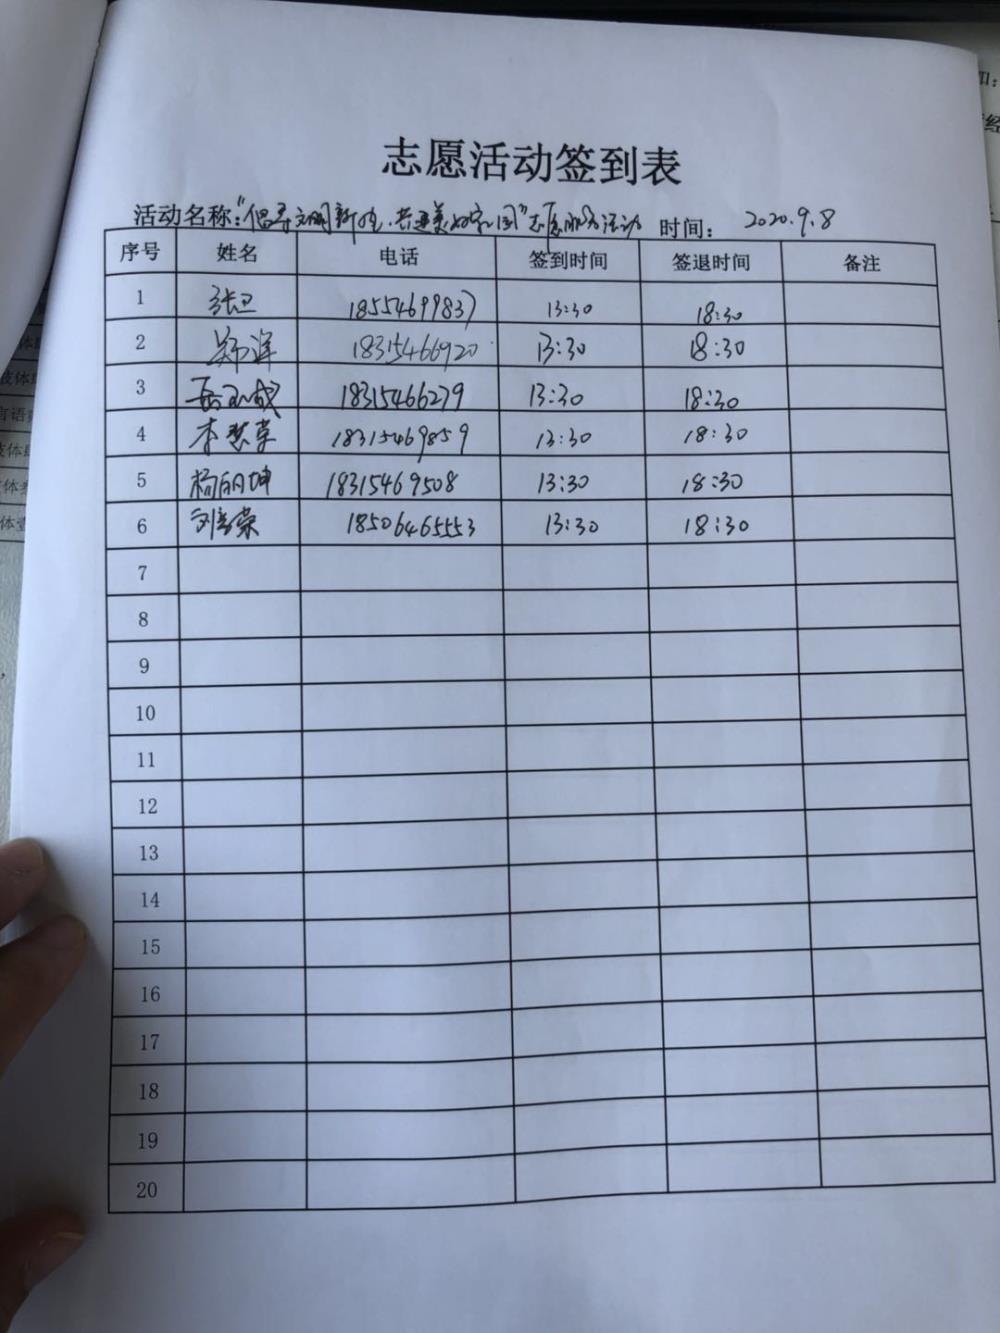 志愿活动签到表
活动名称："倡导文明新风，共建美好家园"志愿服务活动 时间： 2020.9.8
序号 姓名 电话 签到时间 签退时间 备注
1 张卫 18554699837 13:30 18:30
2 郑洋 18315466920 13:30 18:30
3 18315466279 13:30 18:30
4 李慧荣 18315469859 13:30 18:30
5 杨明坤 18315469508 13:30 18:30
6 荣 18506465553 13:30 18:30
7
8
9
10
11
12
13
14
15
16
17
18
19
20